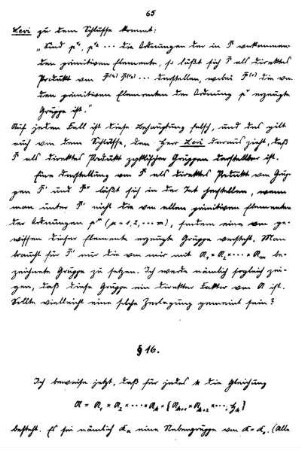 65
Levi zu dem Schlusse kommt:
„Sind p^α, p^β ... die Ordnungen der in Γ vorkommen-
den primitiven Elemente, so läßt sich Γ als direktes
Produkt von Γ^(α) Γ^(β) ... darstellen, wobei Γ^(ε) die von
den primitiven Elementen der Ordnung p^ε erzeugte
Gruppe ist."
Auf jeden Fall ist diese Behauptung falsch, und das gilt
auch von dem Schlusse, den Herr Levi daraus zieht, daß
Γ als direktes Produkt zyklischer Gruppen darstellbar ist.
Eine Darstellung von Γ als direktes Produkt von Grup-
pen Γ' und Γ'' läßt sich in der Tat herstellen, wenn
man unter Γ nicht die von allen primitiven Elementen
der Ordnungen (n = 1, 2, ..., ∞), sondern eine von ge-
wissen dieser Elemente erzeugte Gruppe versteht. Man
braucht für Γ nur die von mir mit be-
zeichnete Gruppe zu setzen. Ich werde nämlich sogleich zei-
gen, daß diese Gruppe ein direkter Faktor von ist.
Sollte vielleicht eine solche Zerlegung gemeint sein?
§ 16.
Ich beweise jetzt, daß für jedes k die Gleichung
besteht. Es sei nämlich eine Nebengruppe von (Alle